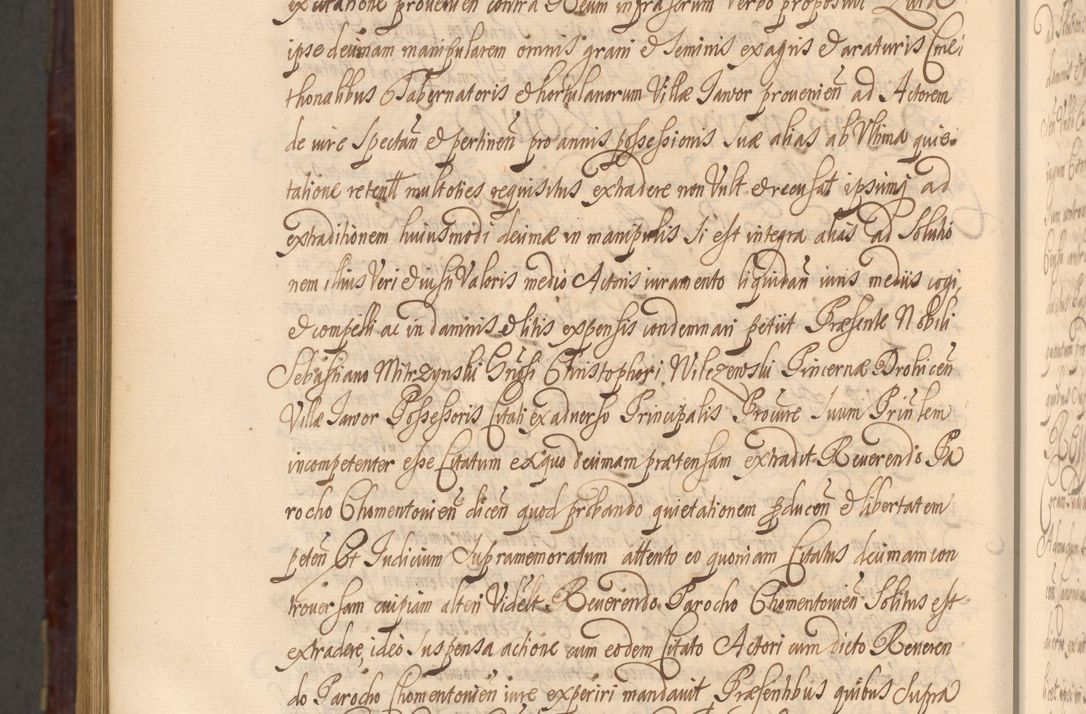 excitatione provenien contra et Reum infrascrum verbo proposuit Quia
ipse decimam manipularem omnis grani et seminis ex agris et araturis Cme
thonalibus Tabernatoris et hortulanorum Villæ Jawor provenien̄ ad Actorem
de iure spectan̄ et pertinen̄ pro annis possessionis suæ alias ab Ultima quie
tatione retent multoties requisitus extradere non Vult et recusat ipsumq ad
extraditionem huiusmodi decimæ in manipulis si est integra alias ad Solutio
nem illius Veri et iusti Valoris medio Actoris iuramento liquidan̄ iuris mediis cogi,
et compelli ac in damnis et litis expensis condemnari petiit Præsente Nobili
Sebastiano Mitrzynski Gnosi Christophori Wilczewski Pincernæ Drohicen̄
Villæ Jawor Possessoris Citati ex adverso Principalis Procure suum Prinlem
incompetenter esse Citatum ex quo decimam prætensam extradit Reverendo Pa
rocho Chomentovien̄ dicen̄ quod probando quietationem producen̄ et libertatem
peten̄ Et Judicium Supramemoratum attento eo quoniam Citatus decimam con
troversam cuipiam alteri Videlt Reverendo Parocho Chomentovien̄ Solitus est
extradere, ideo suspensa actione cum eodem Citato Actori cum dicto Reveren
do Parocho Chomentovien̄ iure experiri mandavit Præsentibus quibus Supra